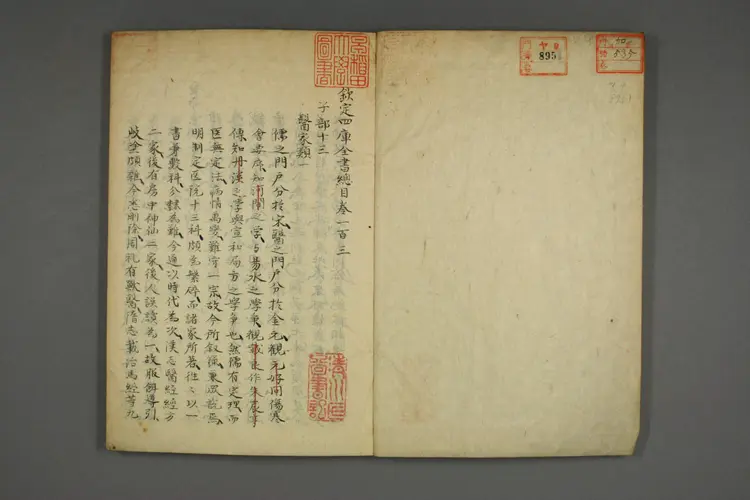 欽定四庫全書總目卷一百三
子部十三
醫家類一
儒之門戶分於宋醫之門戶分於金元觀元好問傷寒
會要序知河間之学与易水之学爭觀戴良作朱震亨
傳知丹溪之学與宣和局方之学爭也然儒有定理而
医無定法病情萬變難守一宗故今所叙録兼眾說焉
明制定医院十三科頗為繁碎而諸家所著往〻以一
書兼數科分隸為難今通以時代為次漢志醫經經方
二家後有房中神仙二家後人誤讀為一故服餌導引
歧塗頗雜今悉刪除周礼有獸醫隋志載治馬經等九
早稲田大學圖書
895